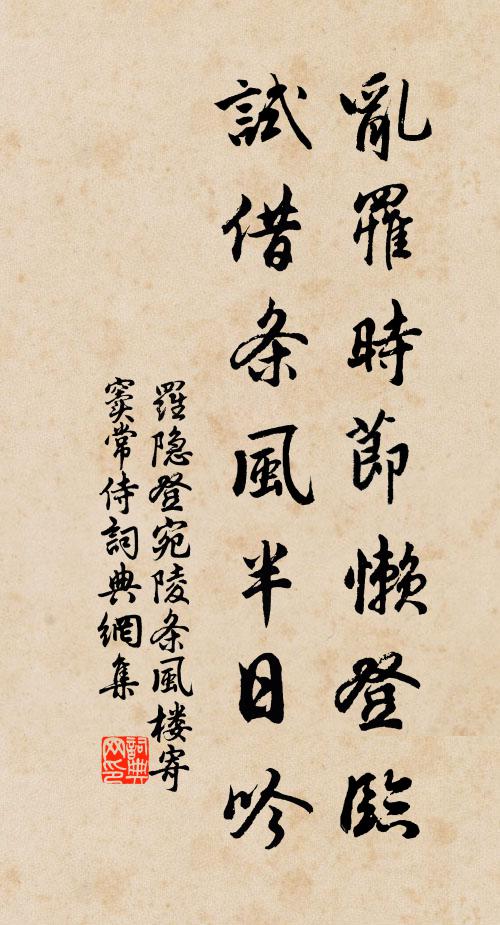 亂罹時節懶登臨
試借条風半日吟
羅隐登宛陵条風楼寄
窦常侍詞典網集
詞典网印